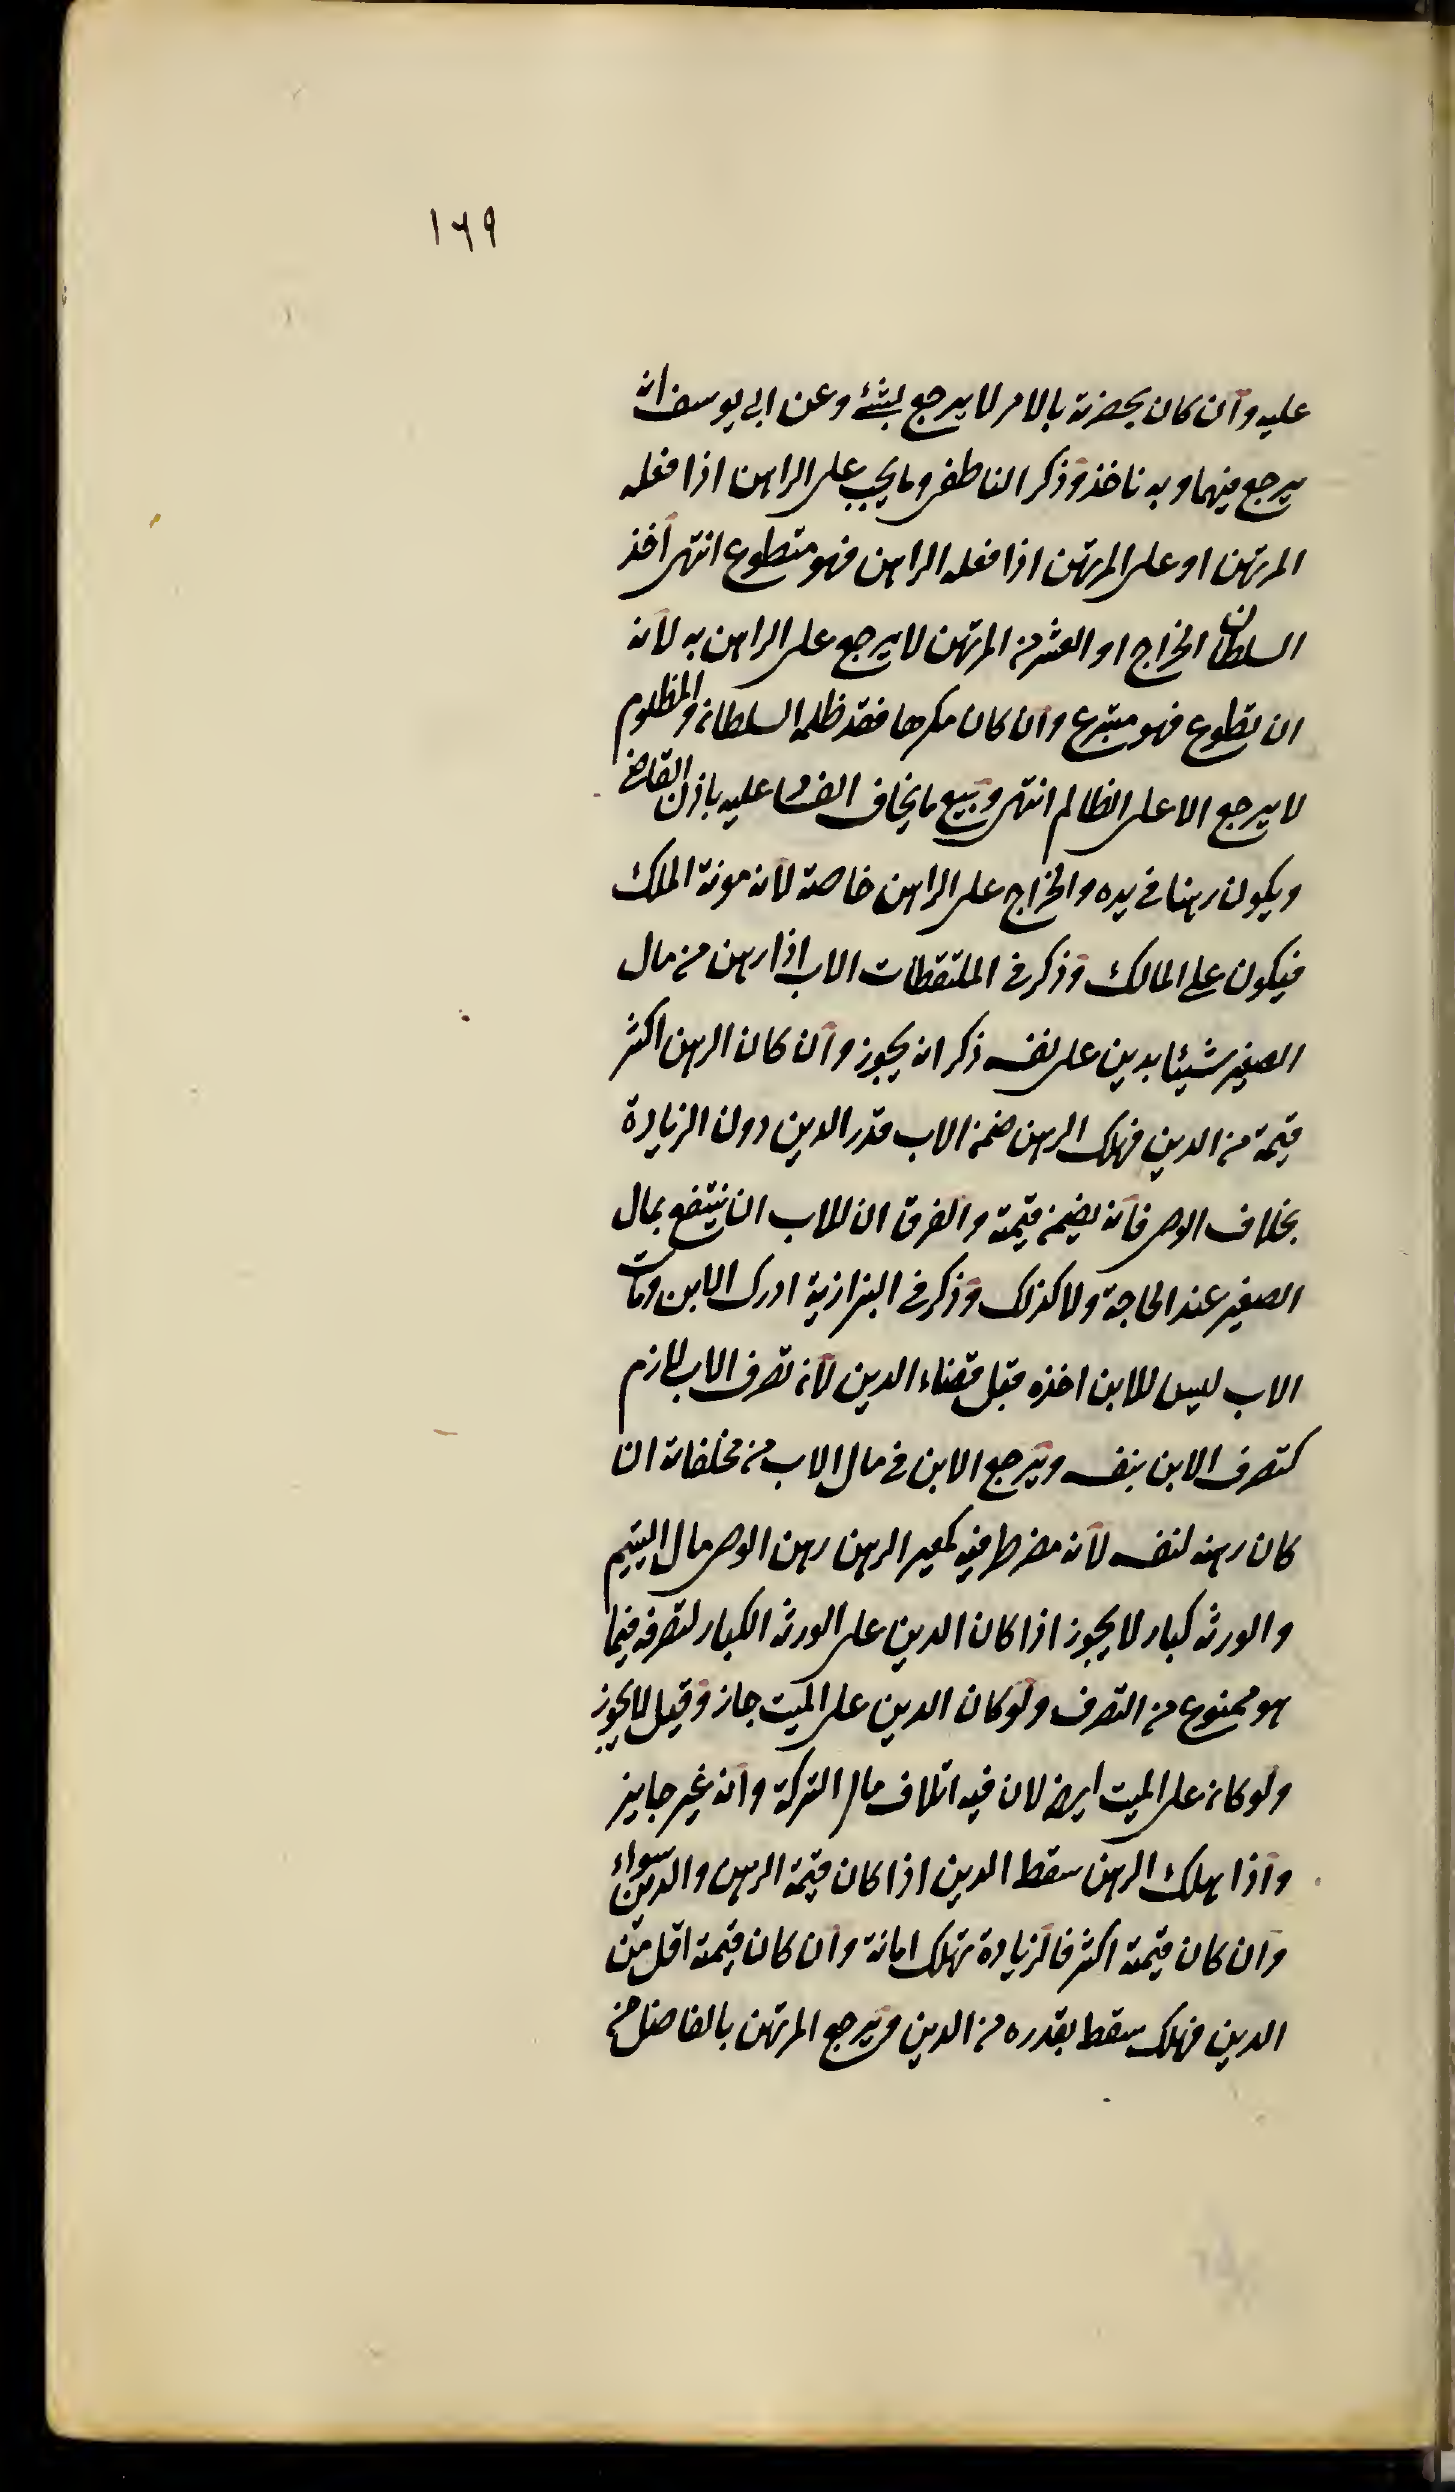 ١٦٩
عليه وان كان بحضرته بالامر لا يرجع بشئ وعن ابي يوسف انه
يرجع فيهما وبه ناخذ وذكر الناطفى وما يجب على الراهن اذا فعله
المرتهن او على المرتهن اذا فعله الراهن فهو متطوع انتهى اخذ
السلطان الخراج او العشر من المرتهن لا يرجع على الراهن به لانه
ان تطوع فهو متبرع وان كان مكرها فقد ظلمه السلطان والمظلوم
لا يرجع الا على الظالم انتهى وبيع ما يخاف الفساد عليه باذن القاضى
ويكون رهنا فى يده والخراج على الراهن خاصة لانه مونة الملك
فيكون على المالك وذكر فى الملتقطات الاب اذا رهن من مال
الصغير شيئا بدين على نفسه ذكر انه يجوز وان كان الرهن اكثر
قيمة من الدين فهلك الرهن ضمن الاب قدر الدين دون الزيادة
بخلاف الوصى فانه يضمن قيمته والفرق ان للاب ان ينتفع بمال
الصغير عند الحاجة ولا كذلك وذكر فى البزازية ادرك الابن ومات
الاب ليس للابن اخذه قبل قضاء الدين لانه تصرف الاب لازم
كتصرف الابن بنفسه ويرجع الابن فى مال الاب من مخلفاته ان
كان رهنه لنفسه لانه مضرط فيه كمعير الرهن رهن الوصى مال اليتيم
والورثة كبار لا يجوز اذا كان الدين على الورثة الكبار لتصرفه فيما
هو ممنوع من التصرف ولو كان الدين على الميت جاز وقيل لا يجوز
ولو كان على الميت ايضا لان فيه اتلاف مال التركة وانه غير جايز
واذا هلك الرهن سقط الدين اذا كان قيمة الرهن والدين سواء
وان كان قيمته اكثر فالزيادة تهلك امانة وان كان قيمته اقل من
الدين فهلك سقط بقدره من الدين ويرجع المرتهن بالفاضل من